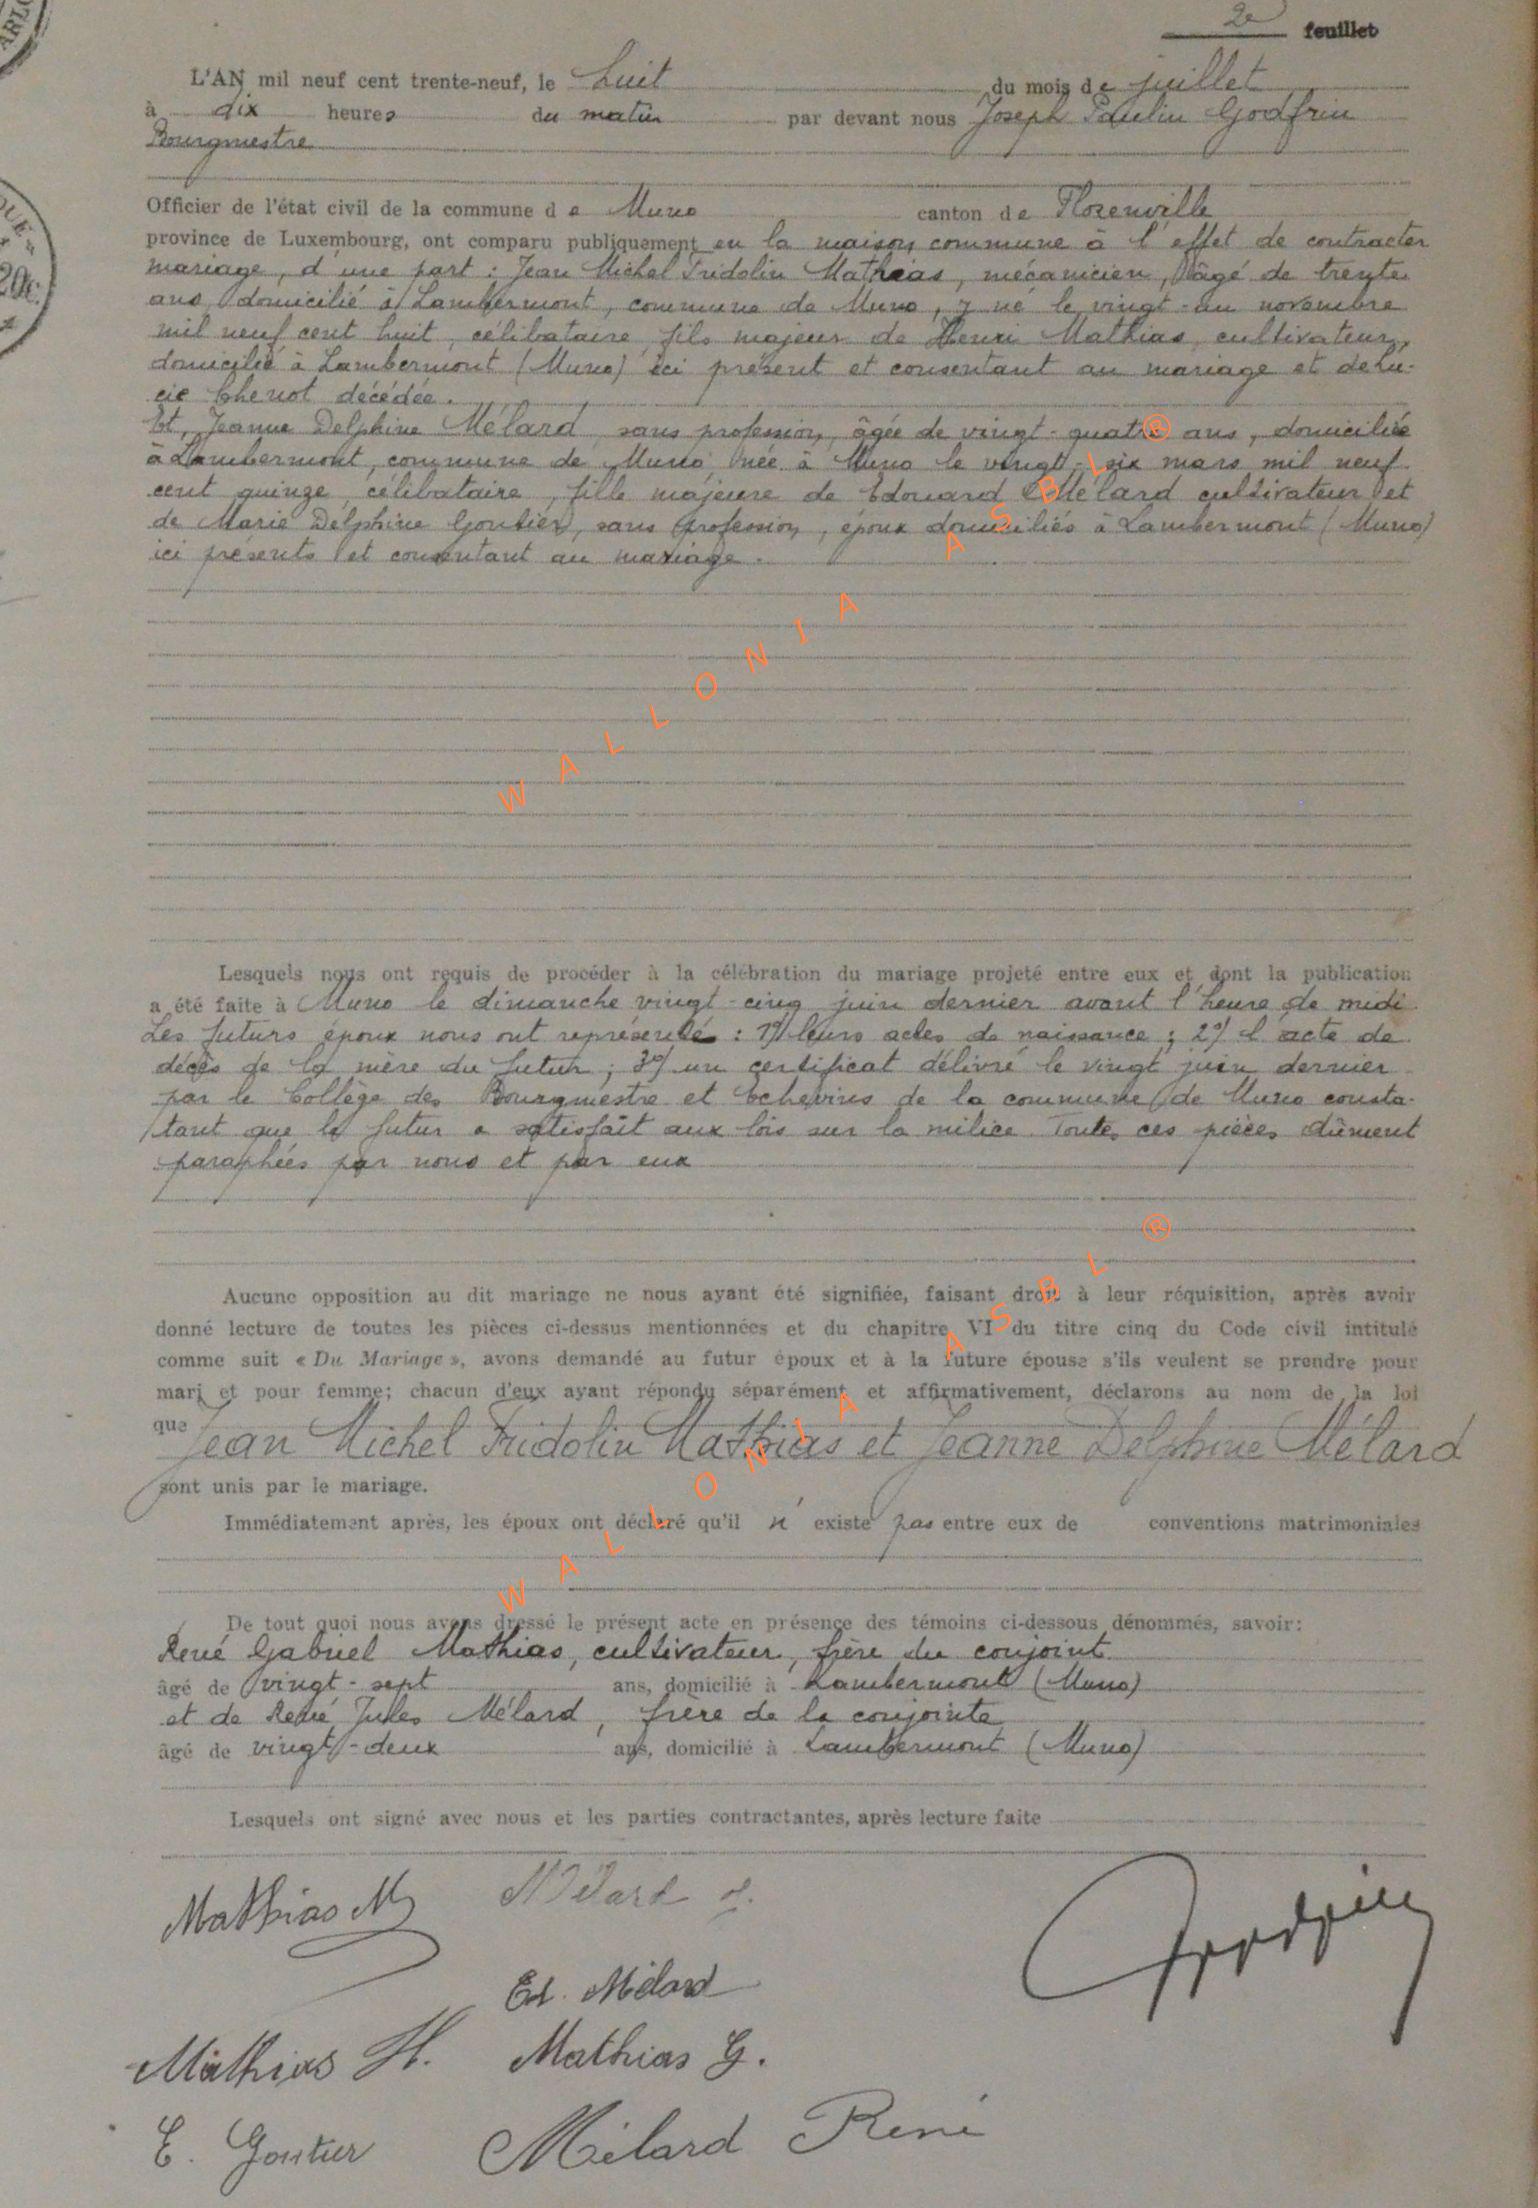 2e feuillet
L'AN mil neuf cent trente-neuf, le huit du mois de juillet
à dix heures du matin par devant nous Joseph Paulin Godfrin
Bourgmestre
Officier de l'état civil de la commune de Muno canton de Florenville
province de Luxembourg, ont comparu publiquement en la maison commune à l'effet de contracter
mariage, d'une part : Jean Michel Fridolin Mathias, mécanicien, âgé de trente
ans, domicilié à Lambermont, commune de Muno, y né le vingt-un novembre
mil neuf cent huit, célibataire, fils majeur de Henri Mathias, cultivateur,
domicilié à Lambermont (Muno) ici présent et consentant au mariage et de Lu-
cie Chenot décédée.
Et, Jeanne Delphine Mélard, sans profession, âgée de vingt-quatre ans, domiciliée
à Lambermont, commune de Muno, née à Muno le vingt-six mars mil neuf
cent quinze, célibataire, fille majeure de Edouard Mélard cultivateur et
de Marie Delphine Goutier, sans profession, époux domiciliés à Lambermont (Muno)
ici présents et consentant au mariage.
WALLONIA ASBL ®
Lesquels nous ont requis de procéder à la célébration du mariage projeté entre eux et dont la publication
a été faite à Muno le dimanche vingt-cinq juin dernier avant l'heure de midi
Les futurs époux nous ont représenté : 1°/ leurs actes de naissance ; 2°/ l'acte de
décès de la mère du futur ; 3°/ un certificat délivré le vingt juin dernier
par le Collège des Bourgmestre et Echevins de la commune de Muno consta-
tant que le futur a satisfait aux lois sur la milice. Toutes ces pièces dûment
paraphées par nous et par eux
Aucune opposition au dit mariage ne nous ayant été signifiée, faisant droit à leur réquisition, après avoir
donné lecture de toutes les pièces ci-dessus mentionnées et du chapitre VI du titre cinq du Code civil intitulé
comme suit « Du Mariage », avons demandé au futur époux et à la future épouse s'ils veulent se prendre pour
mari et pour femme; chacun d'eux ayant répondu séparément et affirmativement, déclarons au nom de la loi
que Jean Michel Fridolin Mathias et Jeanne Delphine Mélard
sont unis par le mariage.
Immédiatement après, les époux ont déclaré qu'il n'existe pas entre eux de conventions matrimoniales
WALLONIA ASBL ®
De tout quoi nous avons dressé le présent acte en présence des témoins ci-dessous dénommés, savoir:
René Gabriel Mathias, cultivateur, frère du conjoint
âgé de vingt-sept ans, domicilié à Lambermont (Muno)
et de René Jules Mélard, frère de la conjointe
âgé de vingt-deux ans, domicilié à Lambermont (Muno)
Lesquels ont signé avec nous et les parties contractantes, après lecture faite
Mathias M Mélard J.
Godfrin
Ed. Mélard
Mathias H. Mathias G.
E. Goutier Mélard René